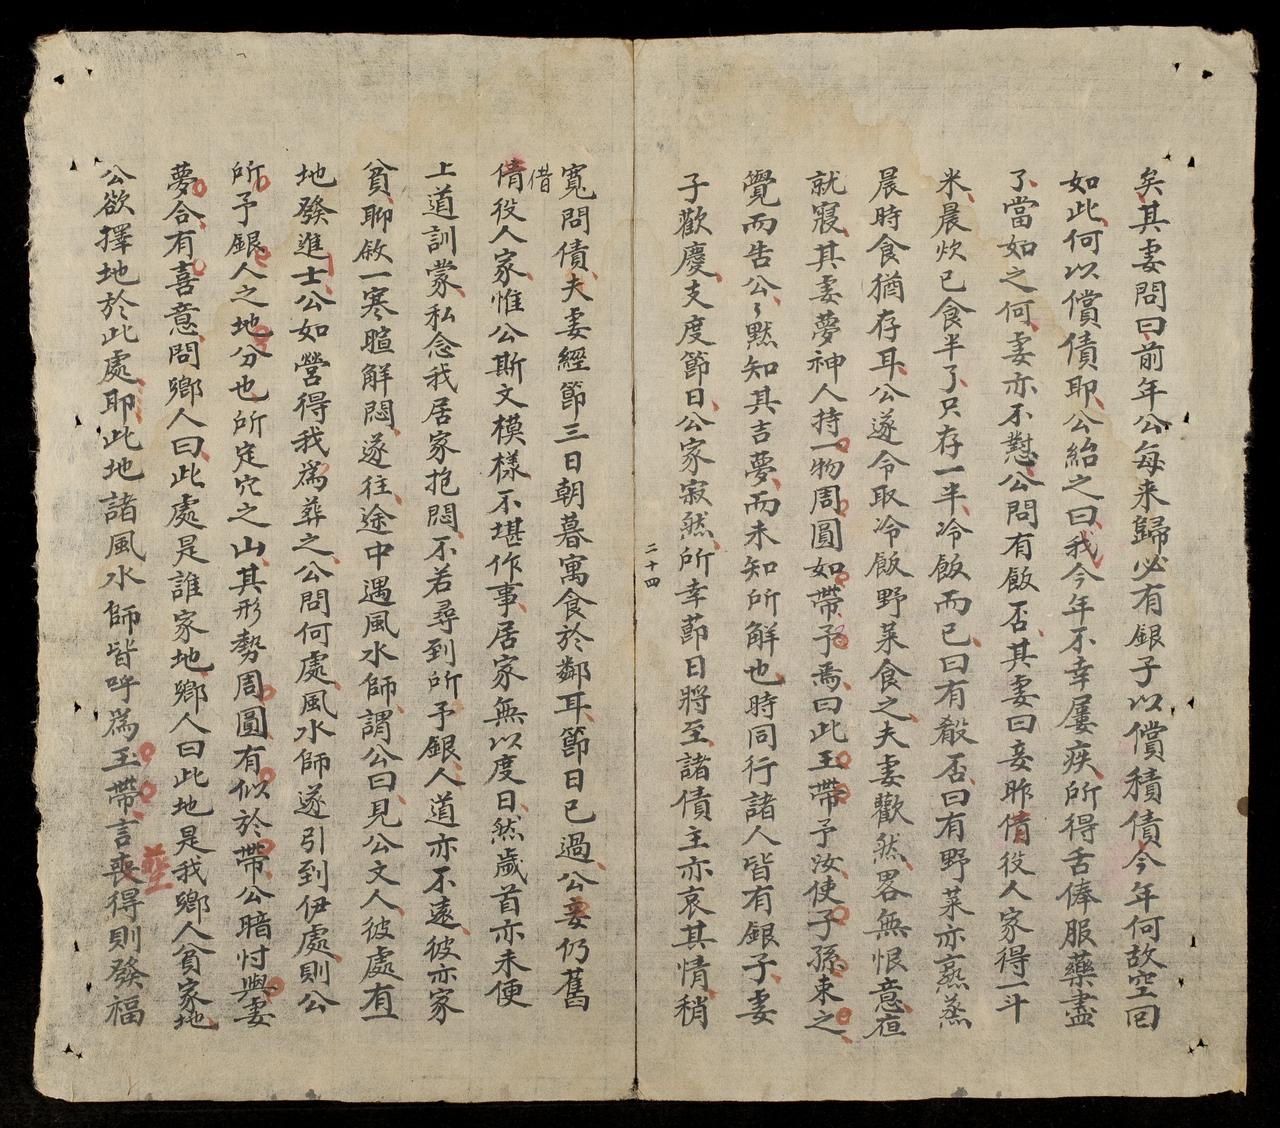 矣其妻問曰前年公每来歸必有銀子以償積債今年何故空囘
如此何以償債耶公紿之曰我今年不幸屢疾所得舌俸服藥盡
了當如之何妻亦不懟公問有飯否其妻曰妾昨借役人家得一斗
米晨炊已食半了只存一半冷飯而已曰有殽否曰有野菜亦熟蒸
晨時食猶存耳公遂令取冷飯野菜食之夫妻歡然畧無恨意夜
就寢其妻夢神人持一物周圓如帶予焉曰此玉帶予汝使子孫束之
覺而告公々默知其吉夢而未知所解也時同行諸人皆有銀子妻
子歡慶支度節日公家寂然所幸節日將至諸債主亦哀其情稍
二十四
寬問債夫妻經節三日朝暮寓食於鄰耳節日已過公妻仍舊
借
倩役人家惟公斯文模樣不堪作事居家無以度日然歲首亦未便
上道訓蒙私念我居家抱悶不若尋到所予銀人道亦不遠彼亦家
貧聊敘一寒暄解悶遂往途中遇風水師謂公曰見公文人彼處有一
地發進士公如營得我爲葬之公問何處風水師遂引到伊處則公
所予銀人之地分也所定穴之山其形勢周圓有似於帶公暗忖與妻
夢合有喜意問鄉人曰此處是誰家地鄉人曰此地是我鄉人貧家地
公欲擇地於此處耶此地諸風水師皆呼爲玉帶言喪得則發福
葬